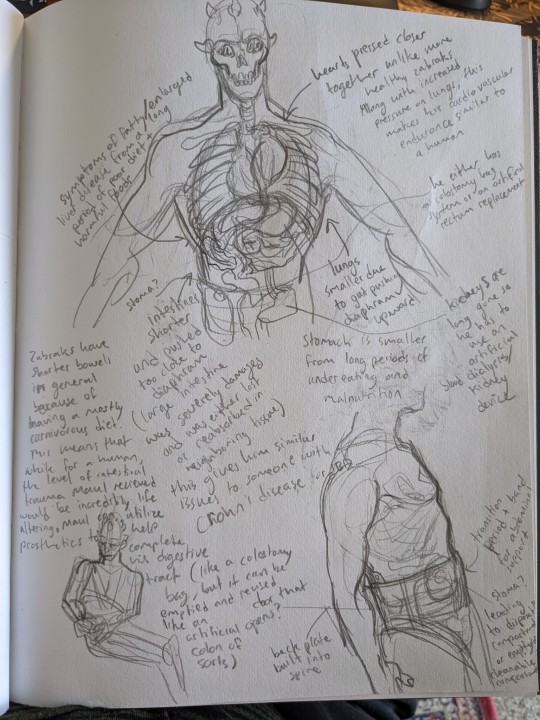 hearts pressed closer
together unlike more
healthy zabraks.
Along with increased
pressure on lungs, this
makes his cardiovascular
endurance similar to
a human
symptoms of fatty/enlarged
liver disease from a long
period of poor diet +
harmful foods
he either has
a colostomy bag
system or an artificial
rectum replacement
stoma?
intestines
shorter
and pushed
too close to
diaphragm
(large intestine
was severely damaged
and was either lost
or reabsorbed in
neighbouring tissue)
this gives him similar
issues to someone with
Crohn's disease
lungs
smaller due
to gut pushing
diaphragm
upward
kidneys are
long gone so
he has to
use an
artificial
dialysis/
kidney
device
Stomach is smaller
from long periods of
undereating and
malnutrition
Zabraks have
shorter bowels
in general
because of
having a mostly
carnivorous diet.
This means that
while for a human,
the level of intestinal
trauma Maul received
would be incredibly life
altering, Maul can utilize
prosthetics to help
complete
his digestive
tract (like a colostomy
bag, but it can be
emptied and reused
like an door that
artificial opens?
colon of
sorts)
back plate
built into
spine
transition
period + band
for abdominal
support
stoma?
leading
to disposal
compartment
or emptyable
cleanable